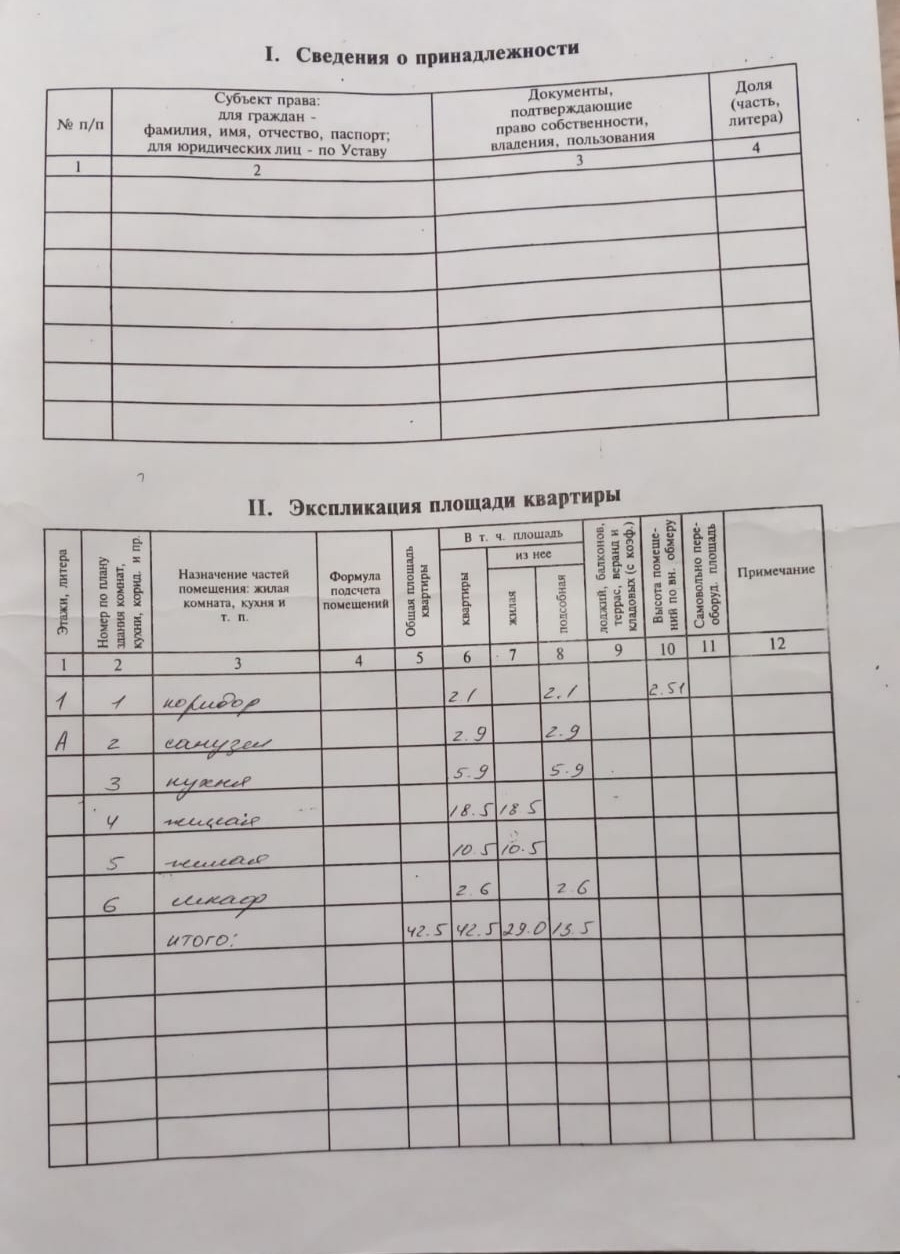 I. Сведения о принадлежности
№ п/п
Субъект права:
для граждан -
фамилия, имя, отчество, паспорт;
для юридических лиц - по Уставу
Документы,
подтверждающие
право собственности,
владения, пользования
Доля
(часть,
литера)
1 2 3 4
II. Экспликация площади квартиры
Этажи, литера
Номер по плану
здания комнат,
кухни, корид. и пр.
Назначение частей
помещения: жилая
комната, кухня и
т. п.
Формула
подсчета
помещений
Общая площадь
квартиры
В т. ч. площадь
квартиры
из нее
жилая
подсобная
лоджий, балконов,
террас, веранд и
кладовых (с коэф.)
Высота помеще-
ний по вн. обмеру
Самовольно пере-
оборуд. площадь
Примечание
1 2 3 4 5 6 7 8 9 10 11 12
1 1 коридор 2.1 2.1 2.51
А 2 санузел 2.9 2.9
3 кухня 5.9 5.9
4 жилая 18.5 18.5
5 жилая 10.5 10.5
6 шкаф 2.6 2.6
итого: 42.5 42.5 29.0 13.5